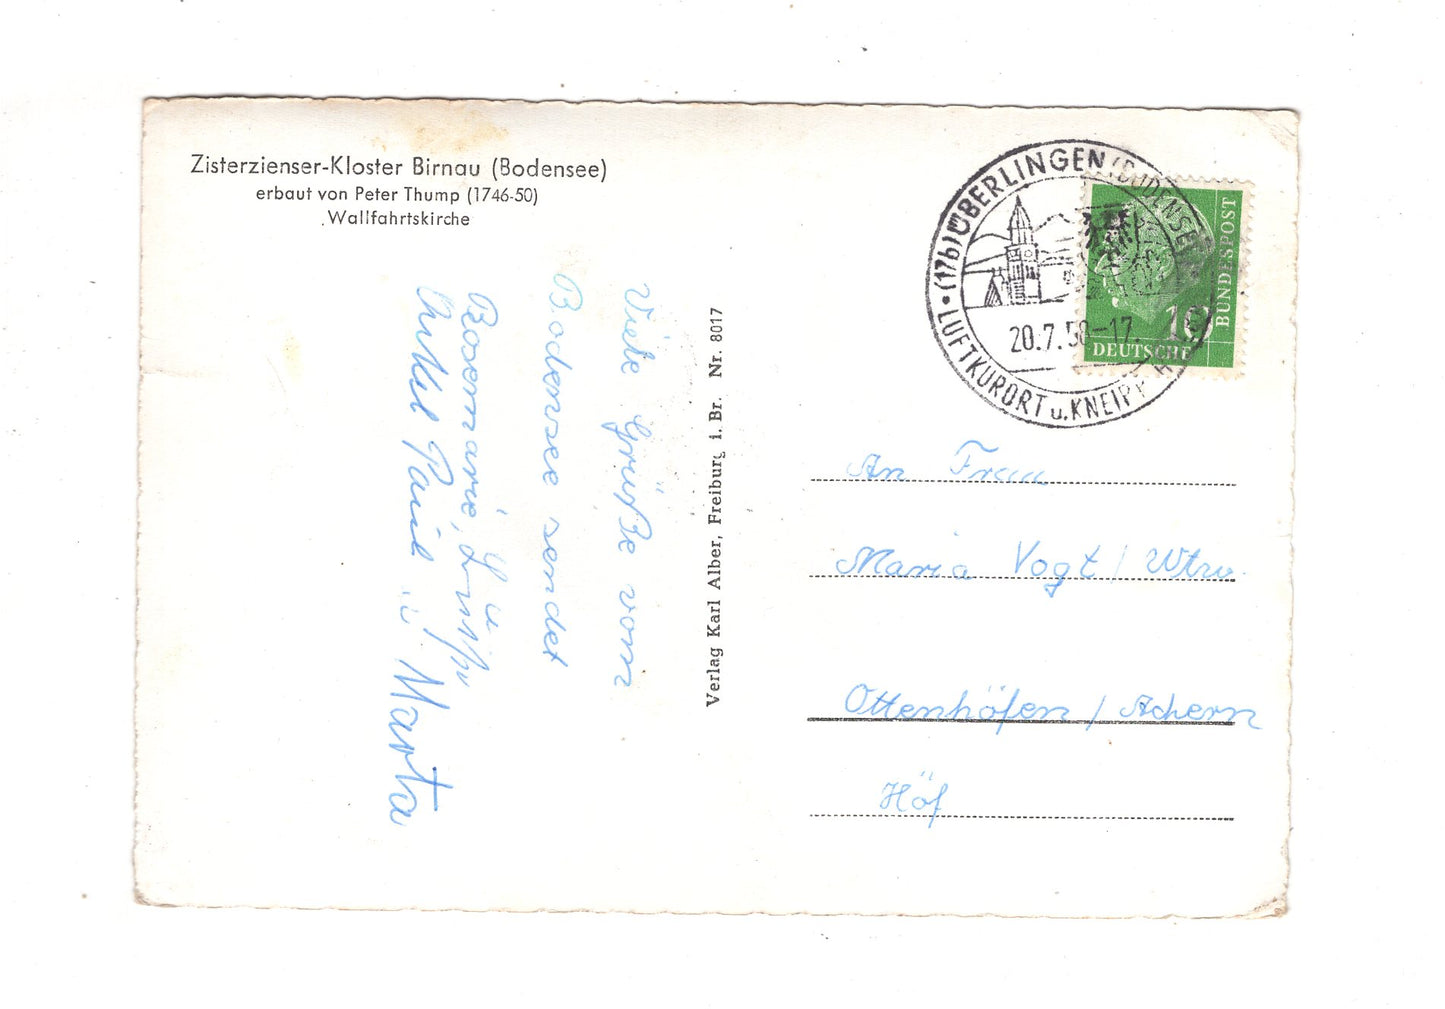 Zisterzienser-Kloster Birnau (Bodensee)
erbaut von Peter Thump (1746-50)
Wallfahrtskirche
Viele Grüße vom
Bodensee sendet
Rosemarie, u.
Onkel Paul u. Marta
Verlag Karl Alber, Freiburg i. Br. Nr. 8017
(17b) ÜBERLINGEN (BODENSEE)
20.7.58-17
LUFTKURORT u. KNEIPP
10
DEUTSCHE
BUNDESPOST
An Frau
Maria Vogt / Wtw.
Ottenhöfen / Achern
Höf